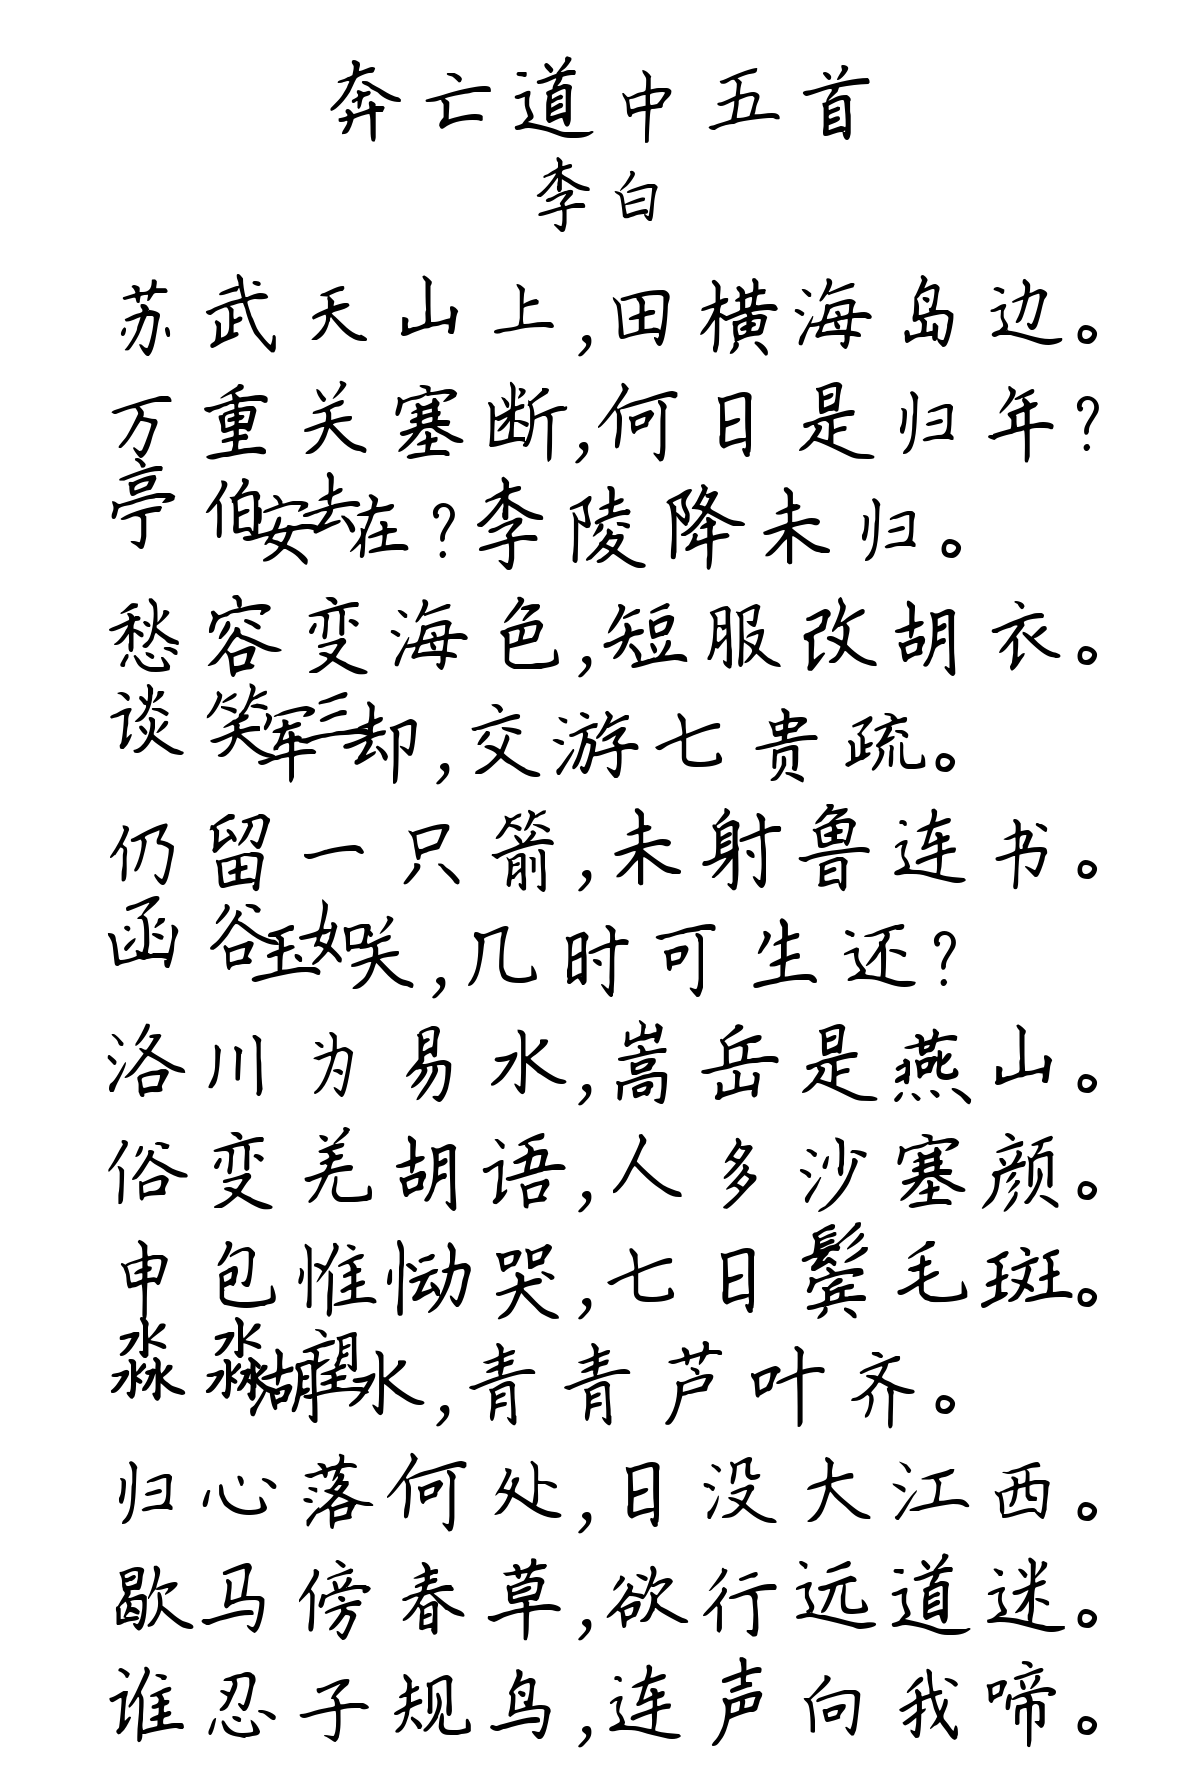 奔亡道中五首
李白
苏武天山上,田横海岛边。
万重关塞断,何日是归年?
亭伯去安在?李陵降未归。
愁容变海色,短服改胡衣。
谈笑三军却,交游七贵疏。
仍留一只箭,未射鲁连书。
函谷如玉关,几时可生还?
洛川为易水,嵩岳是燕山。
俗变羌胡语,人多沙塞颜。
申包惟恸哭,七日鬓毛斑。
淼淼望湖水,青青芦叶齐。
归心落何处,日没大江西。
歇马傍春草,欲行远道迷。
谁忍子规鸟,连声向我啼。